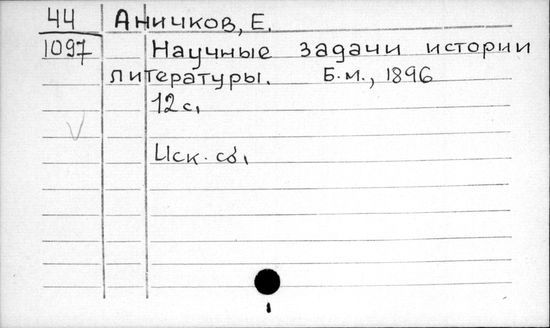 44 Аничков, Е.
1097 Научные задачи истории
литературы. Б.м., 1896
12 с.
Иск. сб.